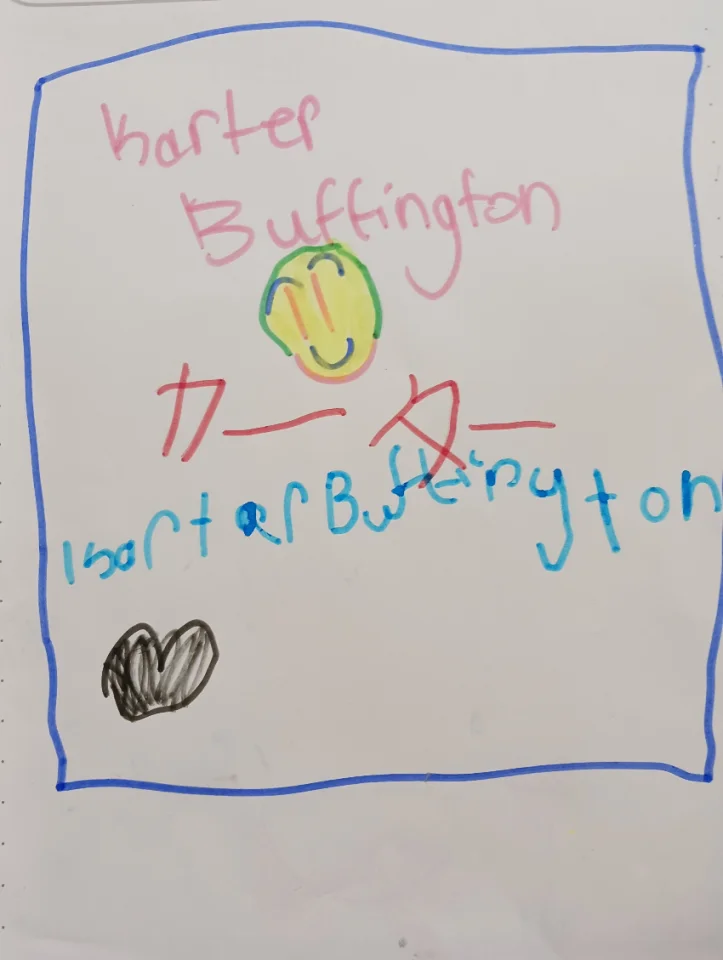 Karter
Buffington
カーター
Karter Buffington